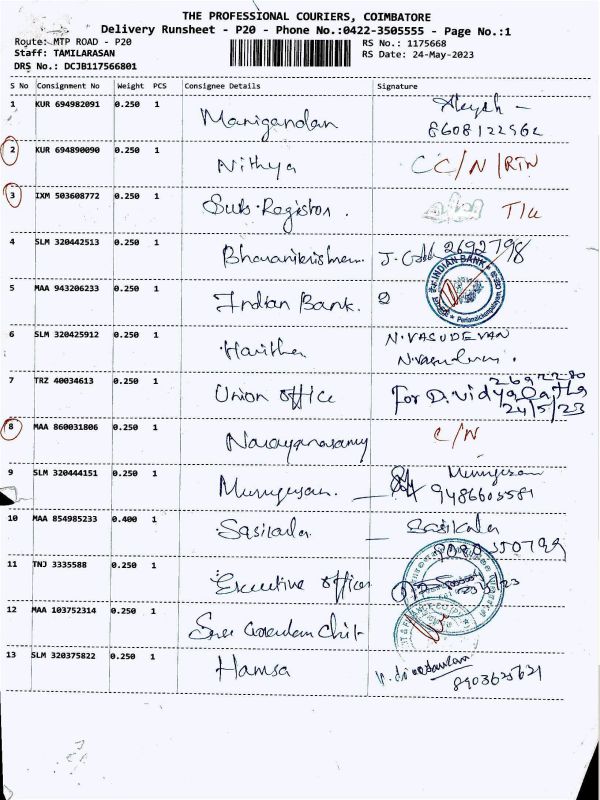 THE PROFESSIONAL COURIERS, COIMBATORE
Delivery Runsheet - P20 - Phone No.:0422-3505555 - Page No.:1
Route: MTP ROAD - P20 RS No.: 1175668
Staff: TAMILARASAN RS Date: 24-May-2023
DRS No.: DCJB117566801
S No Consignment No Weight PCS Consignee Details Signature
1 KUR 694982091 0.250 1 Manigandan
8608122562
2 KUR 694890090 0.250 1 Nithya CC/N/RTN
3 IXM 503608772 0.250 1 Sub. Registor.
4 SLM 320442513 0.250 1 2692798
5 MAA 943206233 0.250 1 Indian Bank.
INDIAN BANK
6 SLM 320425912 0.250 1 Haritha N.VASUDEVAN
N.Vasudevan.
7 TRZ 40034613 0.250 1 Union office For D.Vidya
24/5/23
8 MAA 860031806 0.250 1 Narayanasamy C/N
9 SLM 320444151 0.250 1 Murugesan. Murugesan
10 MAA 854985233 0.400 1 Sasikala Sasikala
11 TNJ 3335588 0.250 1 Executive officer
12 MAA 103752314 0.250 1 Chit
13 SLM 320375822 0.250 1 Hamsa